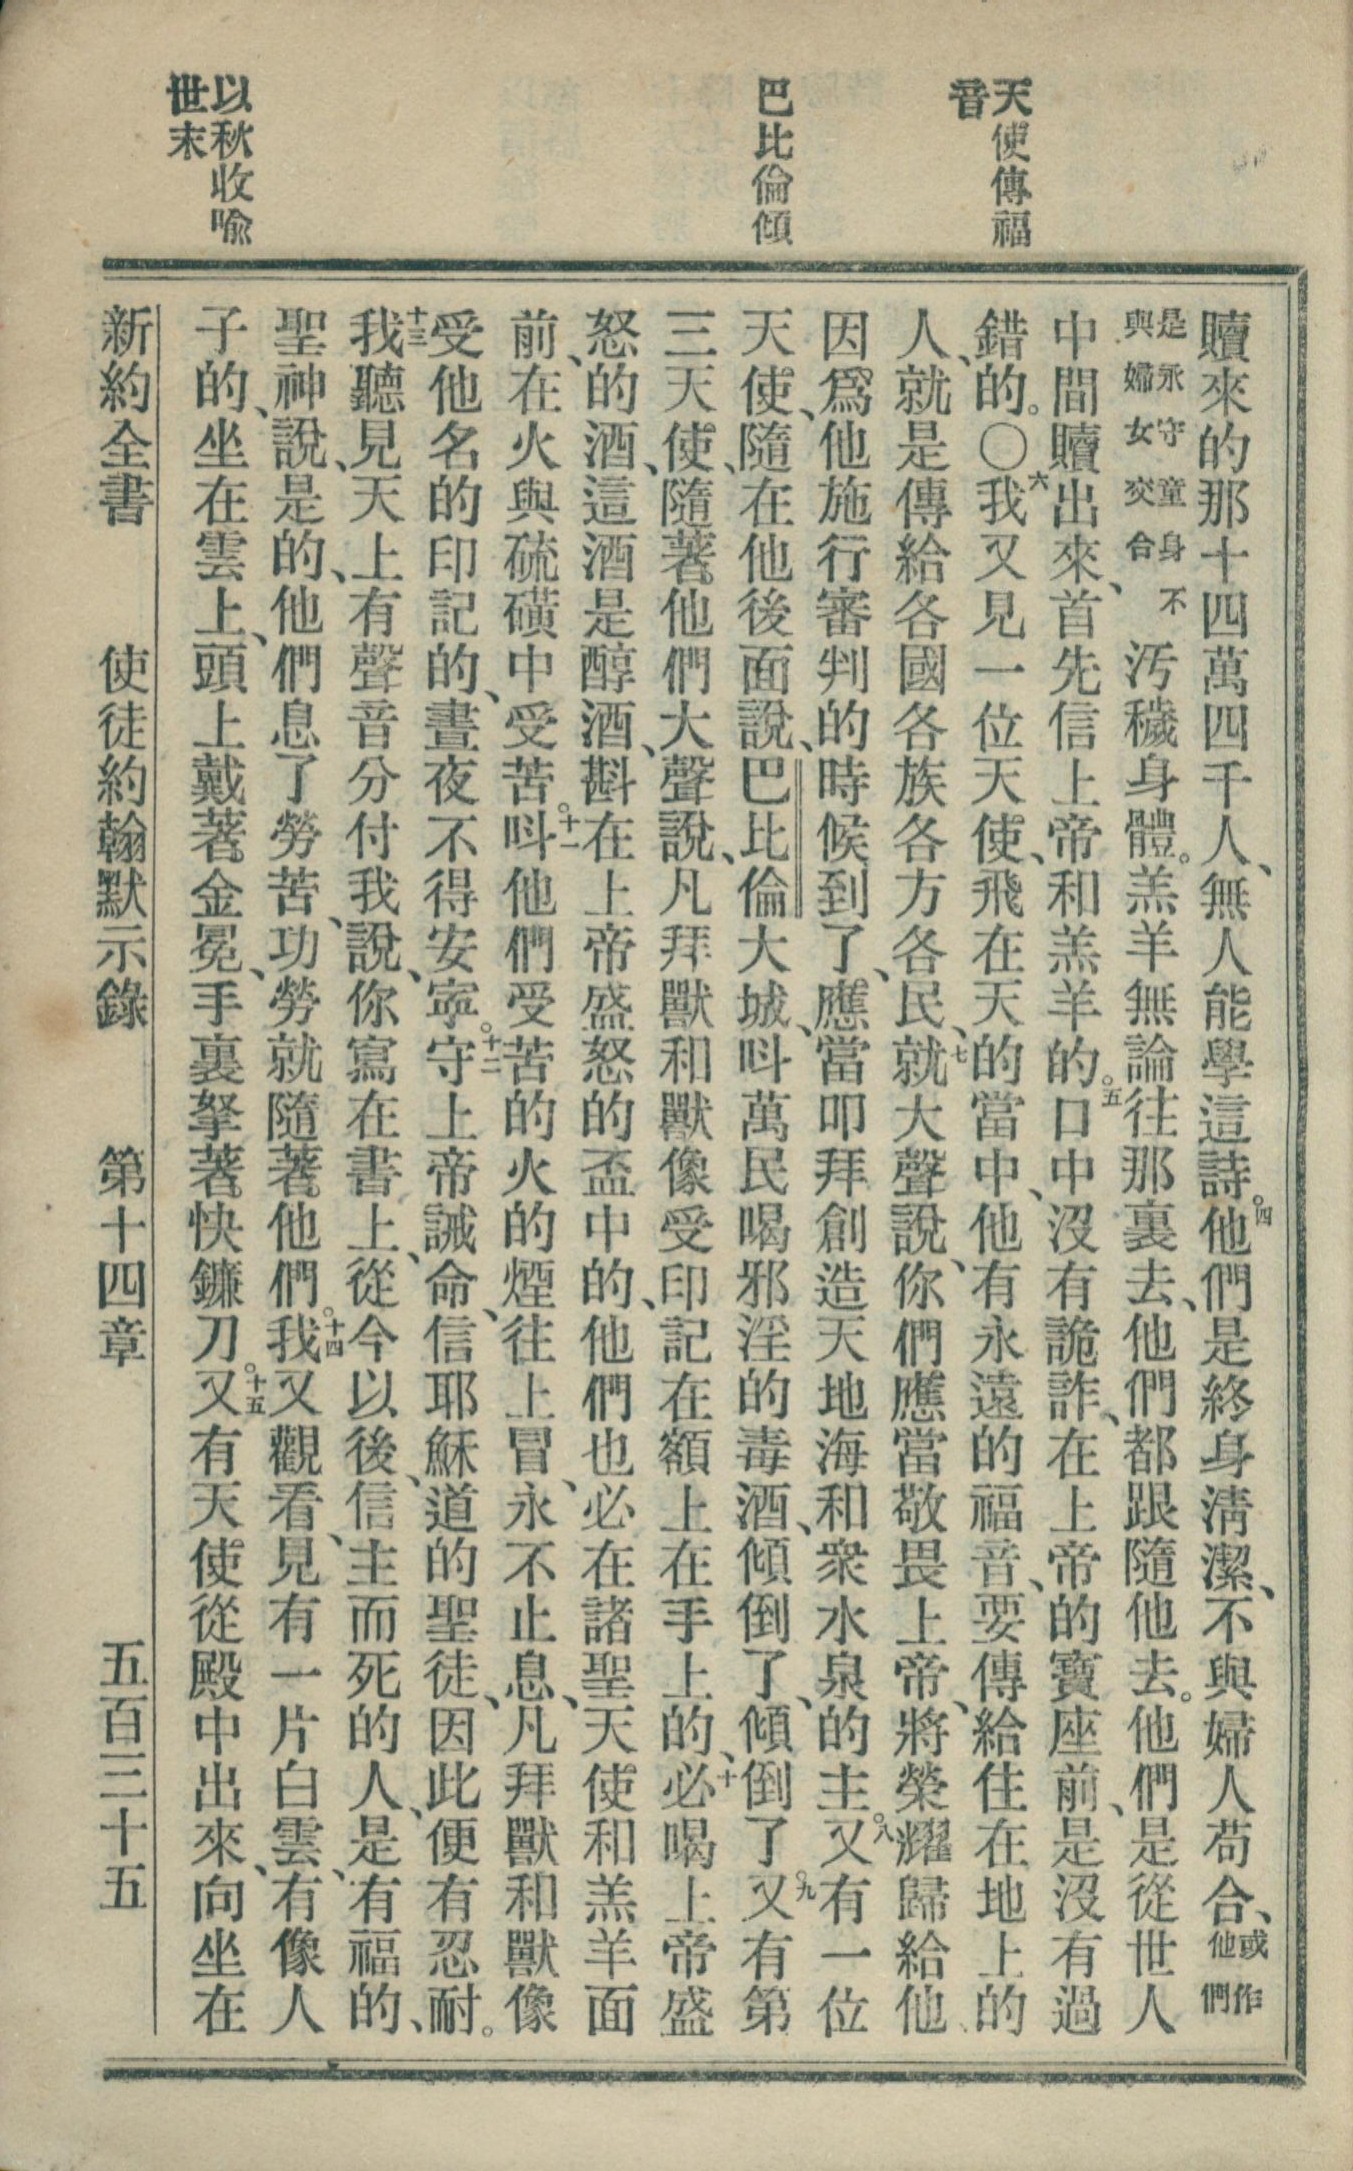 天使傳福
音
巴比倫傾
以秋收喩
世末
贖來的那十四萬四千人、無人能學這詩。四他們是終身淸潔、不與婦人苟合、或作他們
是永守童身不與婦女交合汚穢身體。羔羊無論往那裏去、他們都跟隨他去。他們是從世人
中間贖出來、首先信上帝和羔羊的。五口中沒有詭詐、在上帝的寶座前、是沒有過
錯的。〇六我又見一位天使、飛在天的當中、他有永遠的福音、要傳給住在地上的
人、就是傳給各國各族各方各民、七就大聲說、你們應當敬畏上帝、將榮耀歸給他
因爲他施行審判的時候到了、應當叩拜創造天地海和衆水泉的主。八又有一位
天使、隨在他後面說、巴比倫大城、呌萬民喝邪淫的毒酒、傾倒了、傾倒了。九又有第
三天使、隨著他們大聲說、凡拜獸和獸像受印記在額上在手上的、十必喝上帝盛
怒的酒、這酒是醇酒、斟在上帝盛怒的盃中的、他們也必在諸聖天使和羔羊面
前、在火與硫磺中受苦。十一呌他們受苦的火的煙往上冒、永不止息、凡拜獸和獸像
受他名的印記的、晝夜不得安寧。十二守上帝誡命、信耶穌道的聖徒、因此便有忍耐。
十三我聽見天上有聲音分付我說、你寫在書上、從今以後、信主而死的人、是有福的、
聖神說、是的、他們息了勞苦、功勞就隨著他們。十四我又觀看、見有一片白雲、有像人
子的、坐在雲上、頭上戴著金冕、手裏拏著快鐮刀。十五又有天使從殿中出來、向坐在
新約全書 使徒約翰默示錄 第十四章 五百三十五